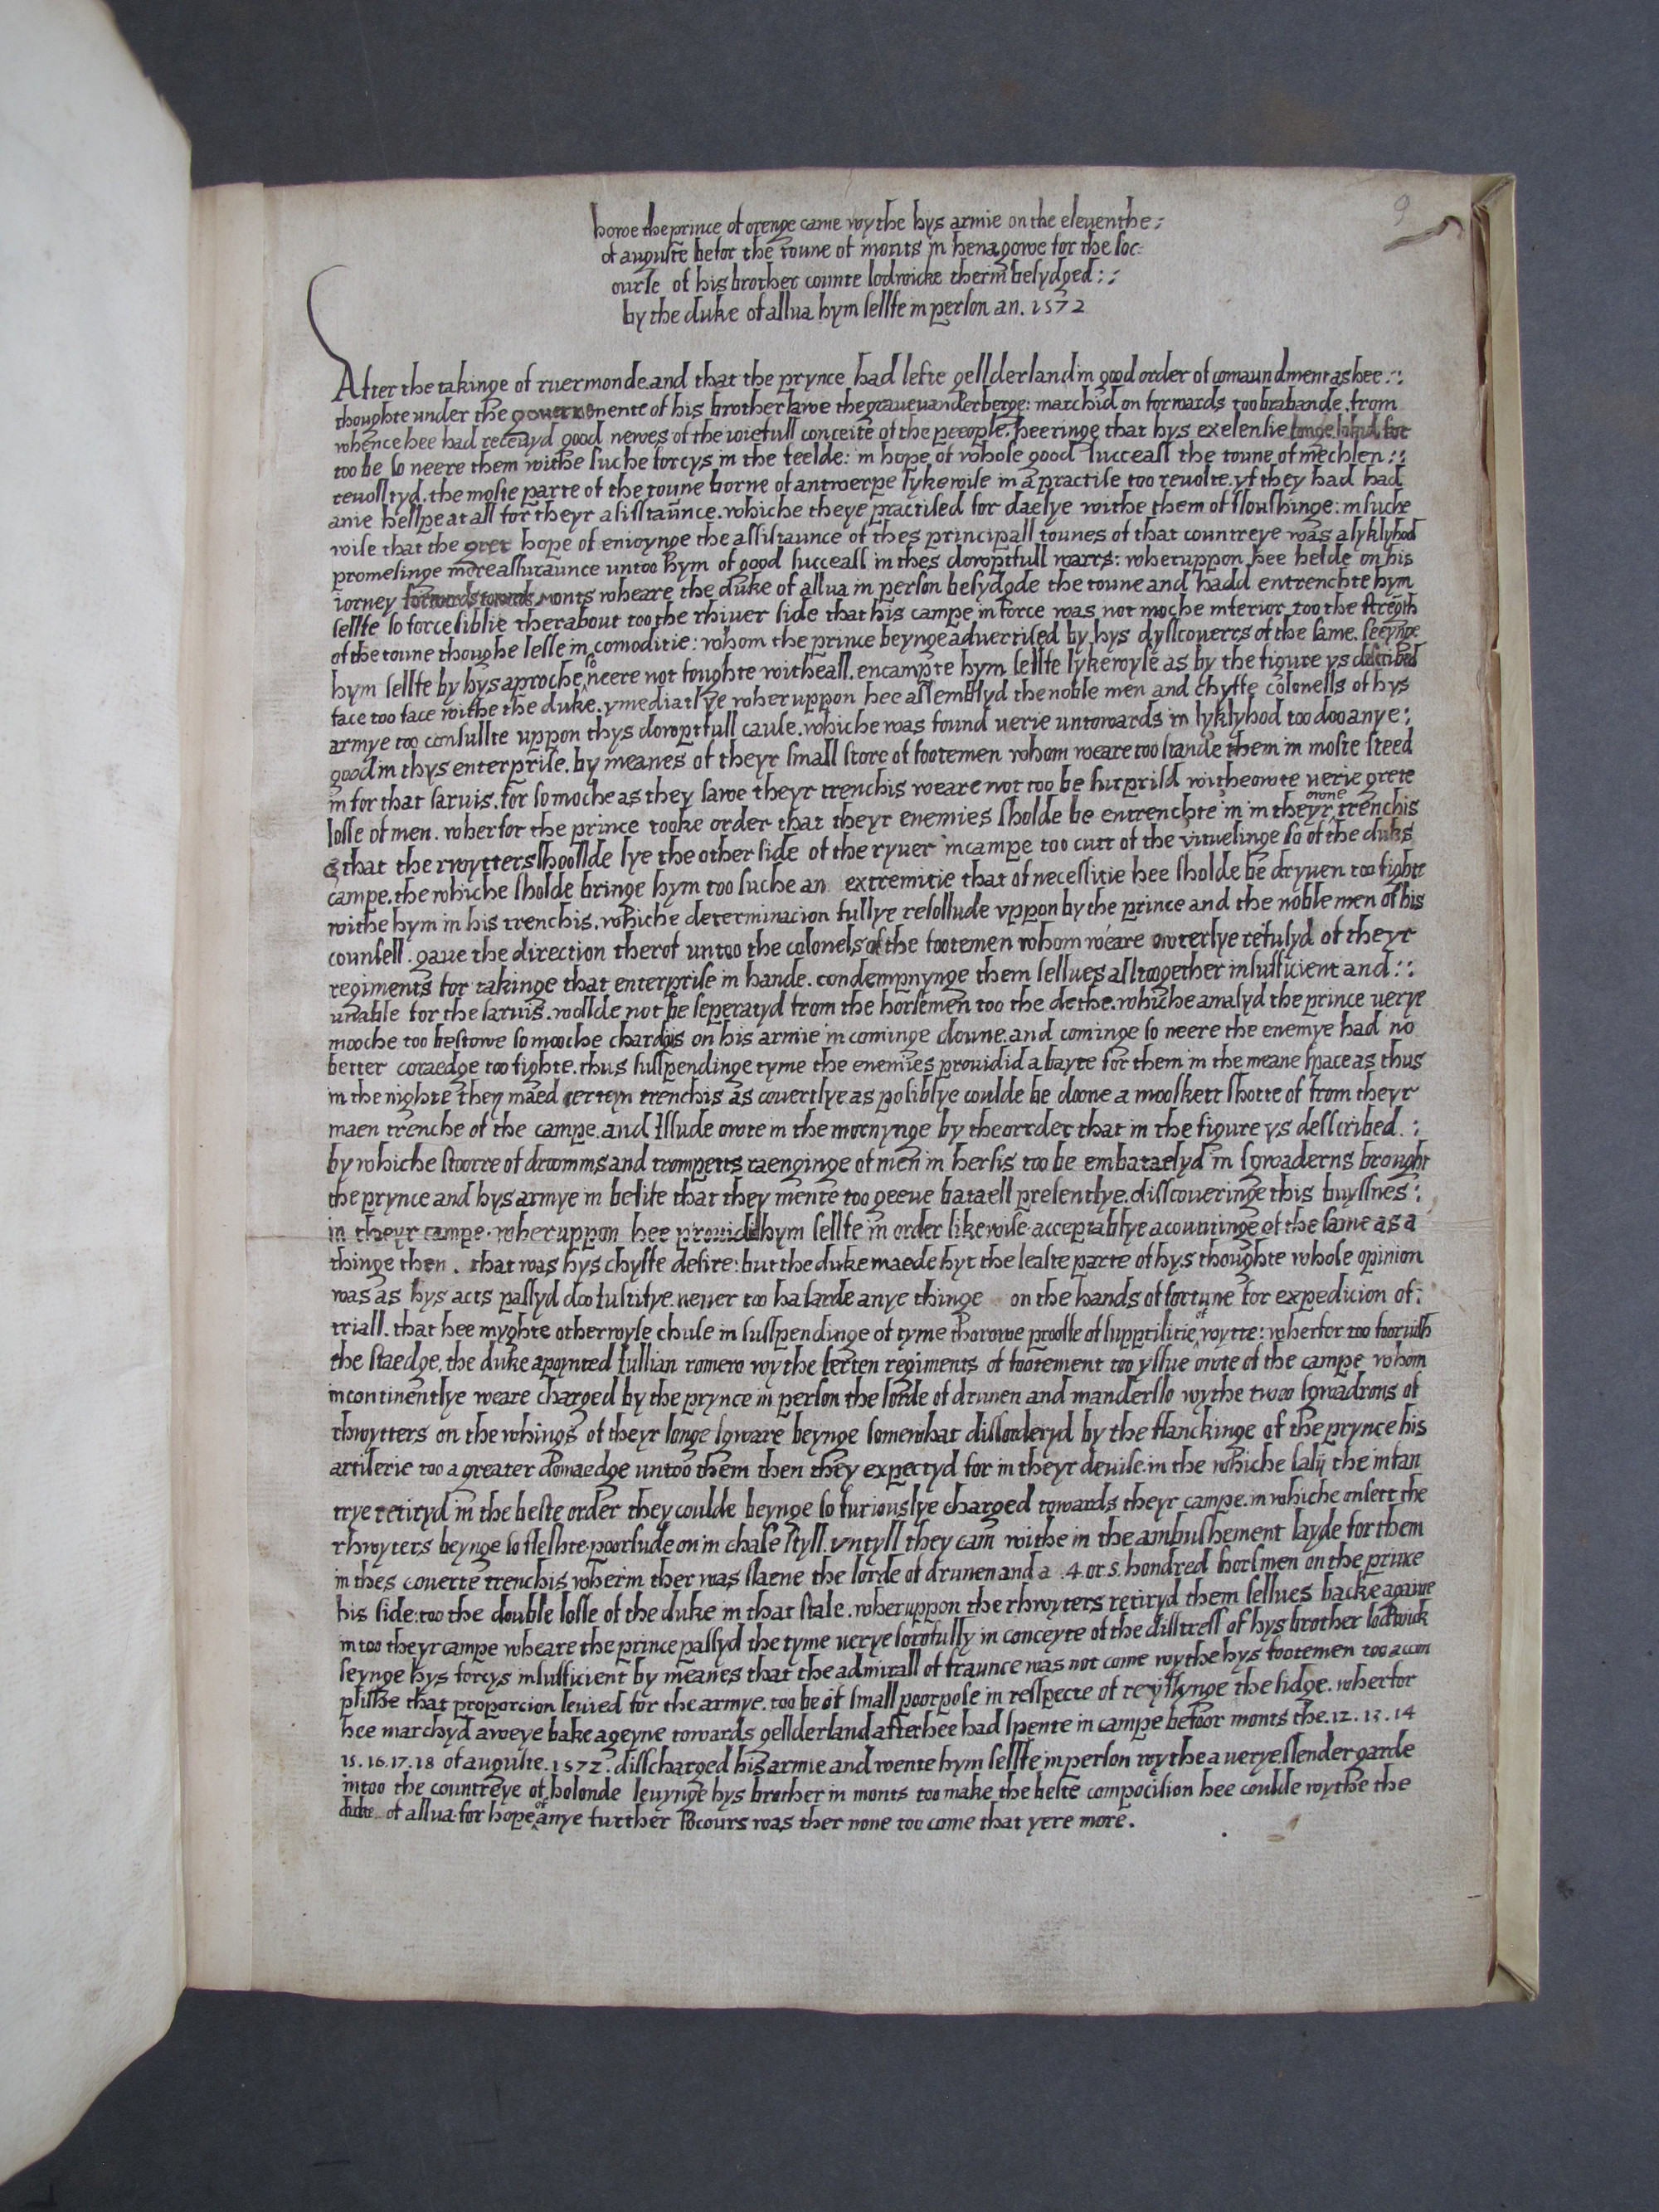 9
howe the prince of orenge came wythe hys armie on the eleventhe :
of auguste befor the toune of monts jn henagowe for the soc-
ourse of his brother counte lodwicke therin besydged : :
by the duke of allva hym sellfe in person an. 1572
After the takinge of ruermonde and that the prynce had lefte gellderland in good order of comaundment as hee : :
thoughte under the governmente of his brother lawe the grave vanderberge : marchid on forwards too brabande . from
whence hee had receuyd good newes of the ioiefull conceite of the peeople . heeringe that hys exelensie longe lokid for
too be so neere them withe suche forcys in the feelde : in hope of whose good succeass the toune of mechlen : :
revolltyd . the moste parte of the toune borne of antwerpe lykewise in a practise too revolte . yf they had had
anie hellpe at all for theyr asisstaunce . whiche theye practised for daelye withe them of sloushinge : in suche
wise that the gret hope of enioynge the assistaunce of thes principall tounes of that countreye was a lyklyhod
promesinge more assuraunce untoo hym of good succeass in thes dowptfull warrs : wheruppon hee helde on his
iorney forwards towards monts wheare the duke of allva in person besydgde the toune and hadd entrenchte hym
sellfe so forcesiblie therabout too the rhiver side that his campe in force was not moche inferior too the stregth
of the toune thoughe lesse in comoditie : whom the prince beynge advertised by hys dysscoverrs of the same . seeynge
hym sellfe by hys aproche so neere not foughte witheall . encampte hym sellfe lykewyse as by the figure ys described
face too face withe the duke . ymediatlye wheruppon hee assemblyd the noble men and chyffe colonells of hys
armye too consullte uppon thys dowptfull cause . whiche was found verie untowards in lyklyhod too doo anye :
good in thys enterprise . by meanes of theyr small store of footemen whom weare too stande them in moste steed
in for that sarvis . for so moche as they sawe theyr trenchis weare not too be surprisd witheowte verie grete
losse of men . wherfor the prince tooke order that theyr enemies sholde be entrenchte in in theyr owne trenchis
& that the rwytters shoollde lye the other side of the ryver in campe too cutt of the vituelinge so of the duks
campe . the whiche sholde bringe hym too suche an extremitie that of necessitie hee sholde be dryven too fighte
withe hym in his trenchis . whiche determinacion fullye resollude vppon by the prince and the noble men of his
counsell . gave the direction therof untoo the colonels of the footemen whom weare owterlye refusyd of theyr
regiments for takinge that enterprise in hande . condempnynge them sellves alltogether insufficient and : :
unable for the sarvis . wollde not be seperatyd from the horsemen too the dethe . whiche amasyd the prince verye
mooche too bestowe so mooche chardgis on his armie in cominge doune . and cominge so neere the enemye had no
better coraedge too fighte . thus susspendinge tyme the enemies providid a bayte for them in the meane space as thus
in the nighte they maed certein trenchis as covertlye as posiblye coulde be doone a mooskett shotte of from theyr
maen trenche of the campe . and Issude owte in the mornynge by the orrder that in the figure ys desscribed . :
by whiche stoorre of droomms and trompetts raenginge of men in hersis too be embataelyd in sqwaderns brought
the prynce and hys armye in belife that they mente too geeve bataell presentlye . disscoveringe this buyssnes :
in theyr campe . wheruppon hee providid hym sellfe in order likewise acceptablye acountinge of the same as a
thinge then . that was hys chyffe desire : but the duke maede hyt the leaste parte of hys thoughte whose opinion
was as hys acts passyd doo justifye . never too hasarde anye thinge on the hands of fortune for expedicion of :
triall . that hee myghte otherwyse chuse in susspendinge of tyme thorowe prooffe of supptilitie of wytte : wherfor too foornish
the staedge , the duke apoynted jullian romero wythe serten regiments of footement too yssue owte of the campe whom
incontinentlye weare charged by the prynce in person the lorde of drunen and manderslo wythe twoo sqwadrons of
rhwytters on the whings of theyr longe sqware beynge somewhat dissorderyd by the flanckinge of the prynce his
artilerie too a greater domaedge untoo them then they expectyd for in theyr devise . in the whiche salij the infan
trye retiryd in the beste order they coulde beynge so furiouslye charged towards theyr campe . in whiche onsett the
rhwyters beynge so fleshte poorsude on in chase styll . vntyll they cam withe in the ambushement layde for them
in thes coverte trenchis wherin ther was slaene the lorde of drunen and a . 4 . or 5 . hondred horsmen on the prince
his side : too the double losse of the duke in that stale . wheruppon the rhwyters retiryd them sellves backe agaiwe
in too theyr campe wheare the prince passyd the tyme verye sorofully in conceyte of the disstress of hys brother lodwick
seynge hys forcys insufficient by meanes that the admirall of fraunce was not come wythe hys footemen too accom
plishe that proporcion levied for the armye . too be of small poorpose in resspecte of reyssynge the sidge . wherfor
hee marchyd aweye bake ageyne towards gellderland after hee had spente in campe befoor monts the . 12 . 13 . 14
15 . 16 . 17 . 18 of auguste . 1572 . disscharged his armie and wente hym sellfe in person wythe a verye slender garde
intoo the countreye of holonde levynge hys brother in monts too make the beste compocision hee coulde wythe the
duke of allva . for hope of anye further socours was ther none too come that yere more .